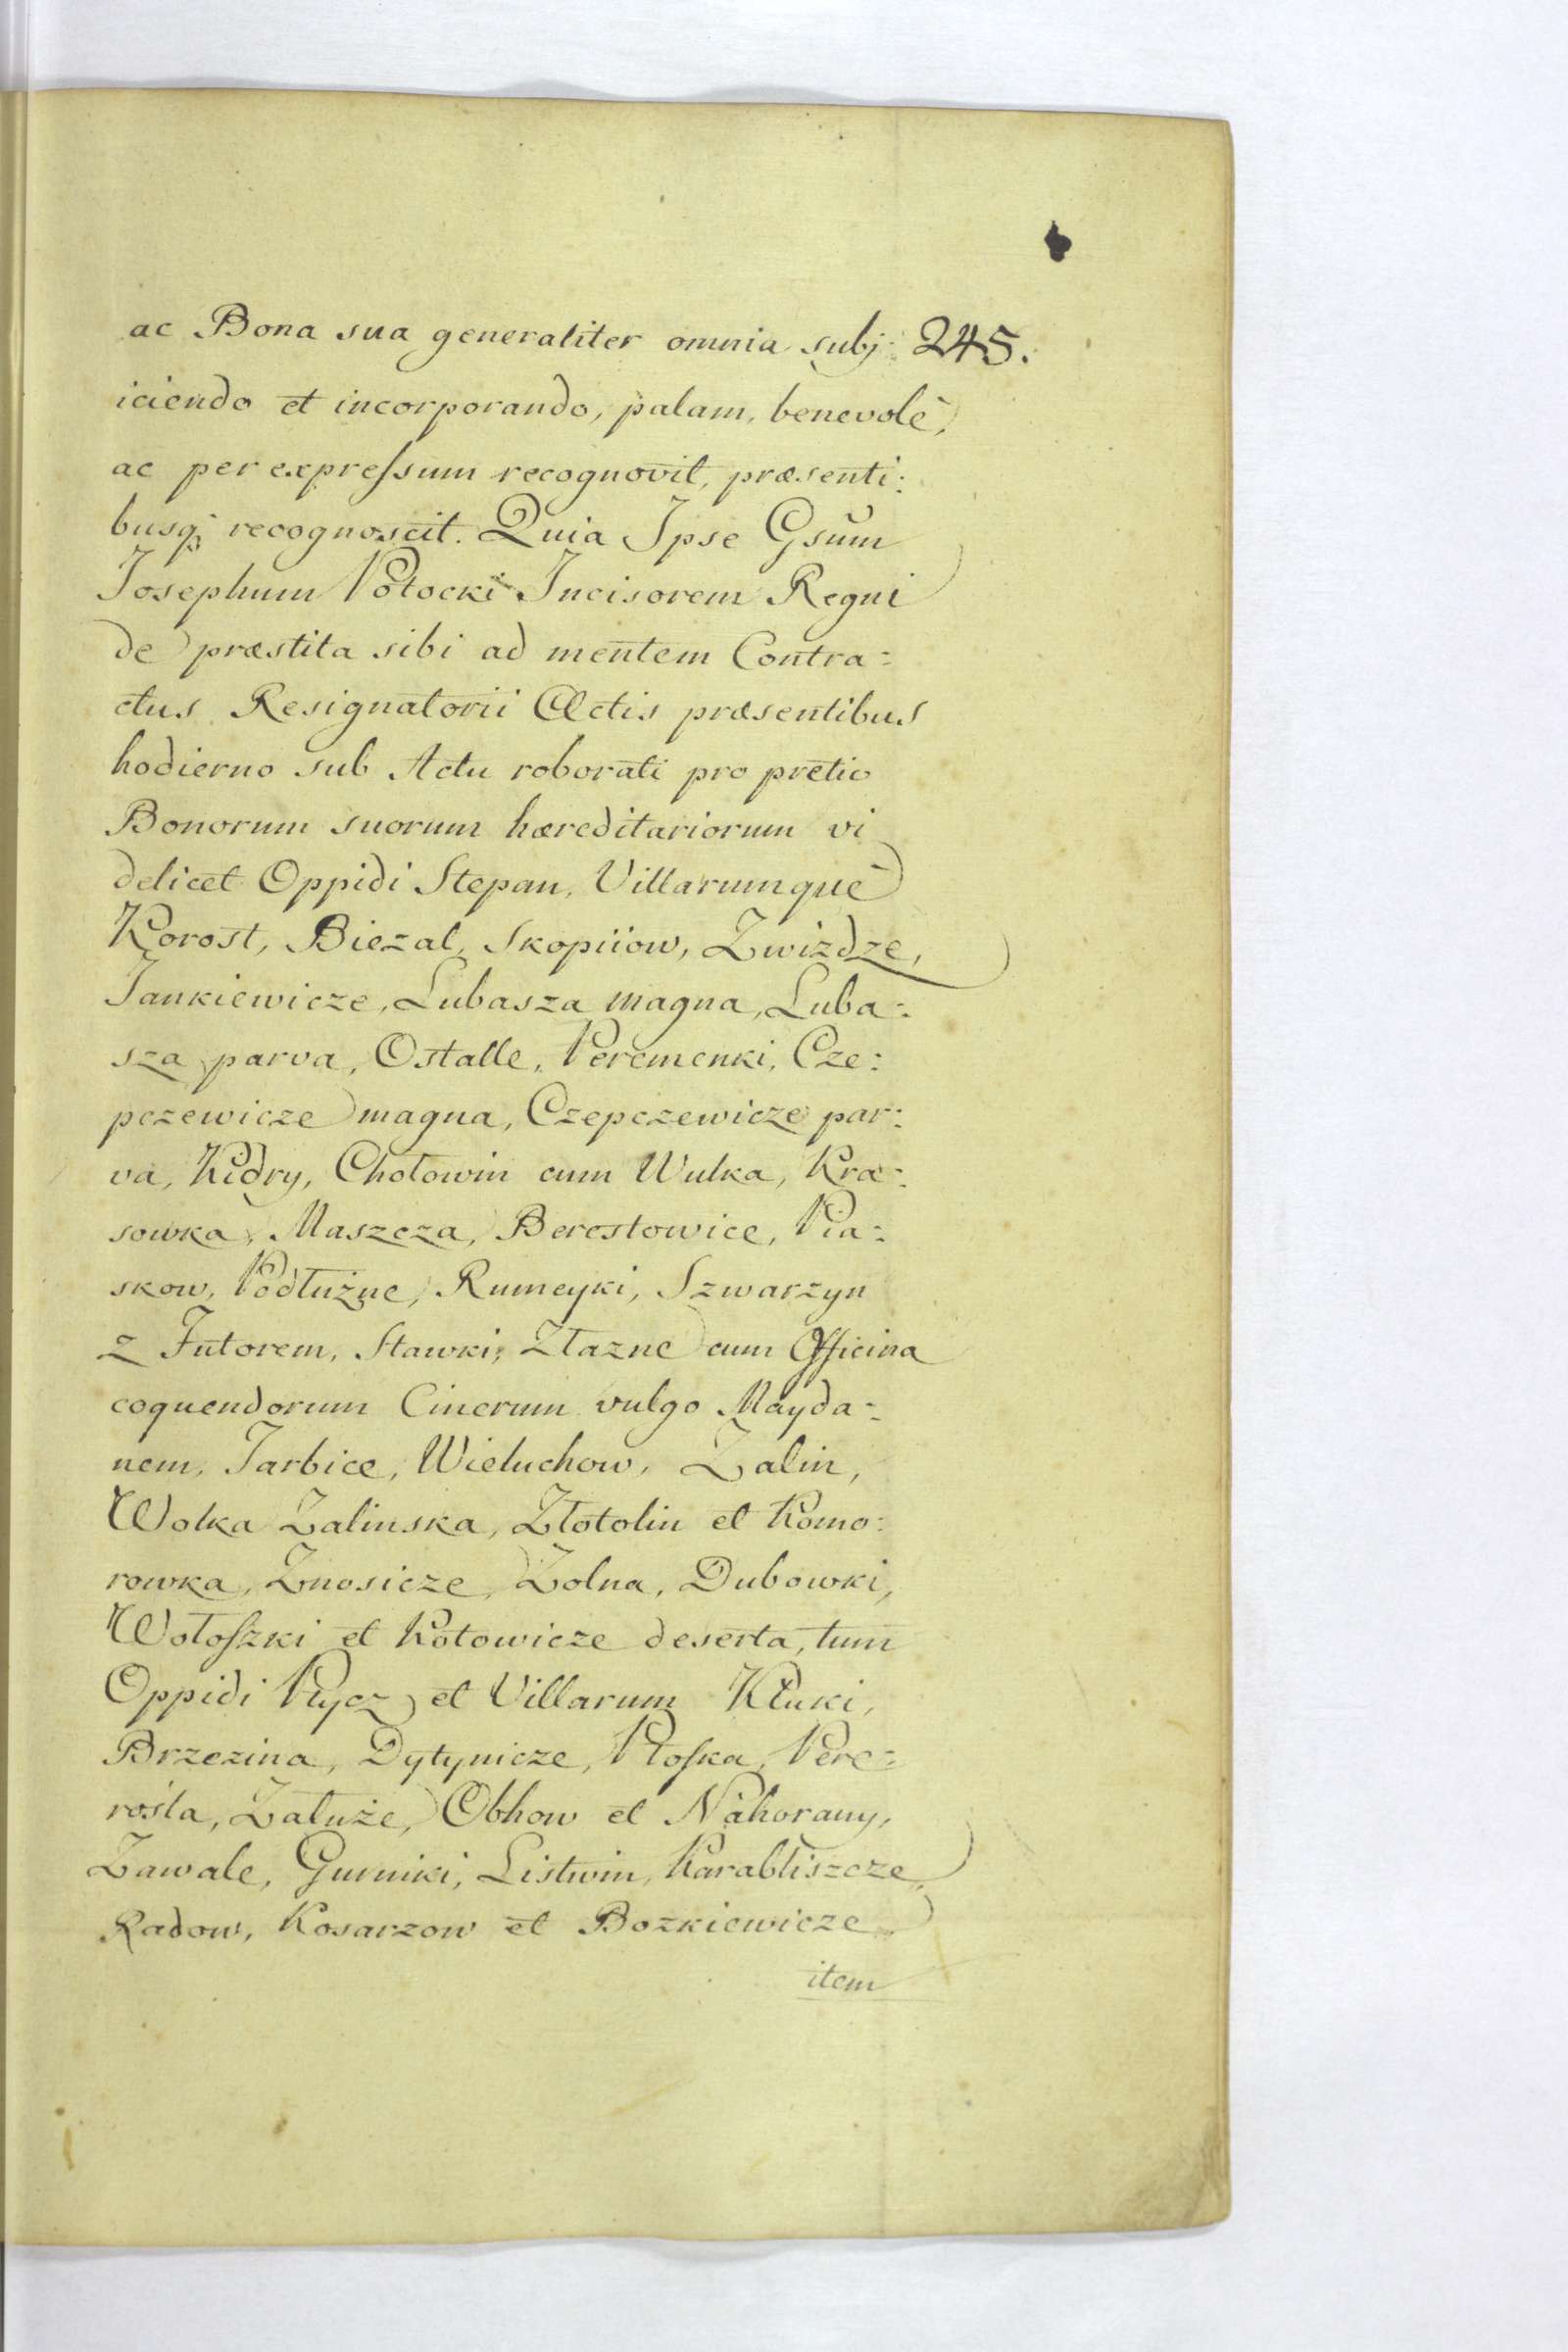 ac Bona sua generaliter omnia subj: 245.
iciendo et incorporando, palam, benevolè,
ac per expreſsum recognovit, præsenti:
busq; recognoscit. Quia Ipse Gsūm
Josephum Potocki Incisorem Regni
de præstita sibi ad mentem Contra:
ctus Resignatorii Actis præsentibus
hodierno sub Actu roborati pro pretio
Bonorum suorum hæreditariorum vi
delicet Oppidi Stepan, Villarumquè
Korost, Biezal, Skopiiow, Zwizdze,
Jankiewicze, Lubasza magna, Luba:
sza parva, Ostalle, Peremenki, Cze:
pczewicze magna, Czepczewicze par:
va, Kidry, Chotowin cum Wulka, Kra:
sowka, Maszcza, Berestowice, Pia:
skow, Podłużne, Rumeyki, Szwarzyn
z Futorem, Stawki, Złazne cum Officina
coquendorum Cinerum vulgo Mayda:
nem, Jarbice, Wieluchow, Zalin,
Wolka Zalinska, Złotolin et Komo:
rowka, Znosicze, Zolna, Dubowki,
Wołoſzki et Kotowicze deserta, tum
Oppidi Ptycz et Villarum Kłuki,
Brzezina, Dytynicze, Płoſka, Pere:
rosła, Załuże, Obhow et Nahorany,
Zawale, Gurniki, Listwin, Karabliszcze,
Radow, Kosarzow et Bozkiewicze
item